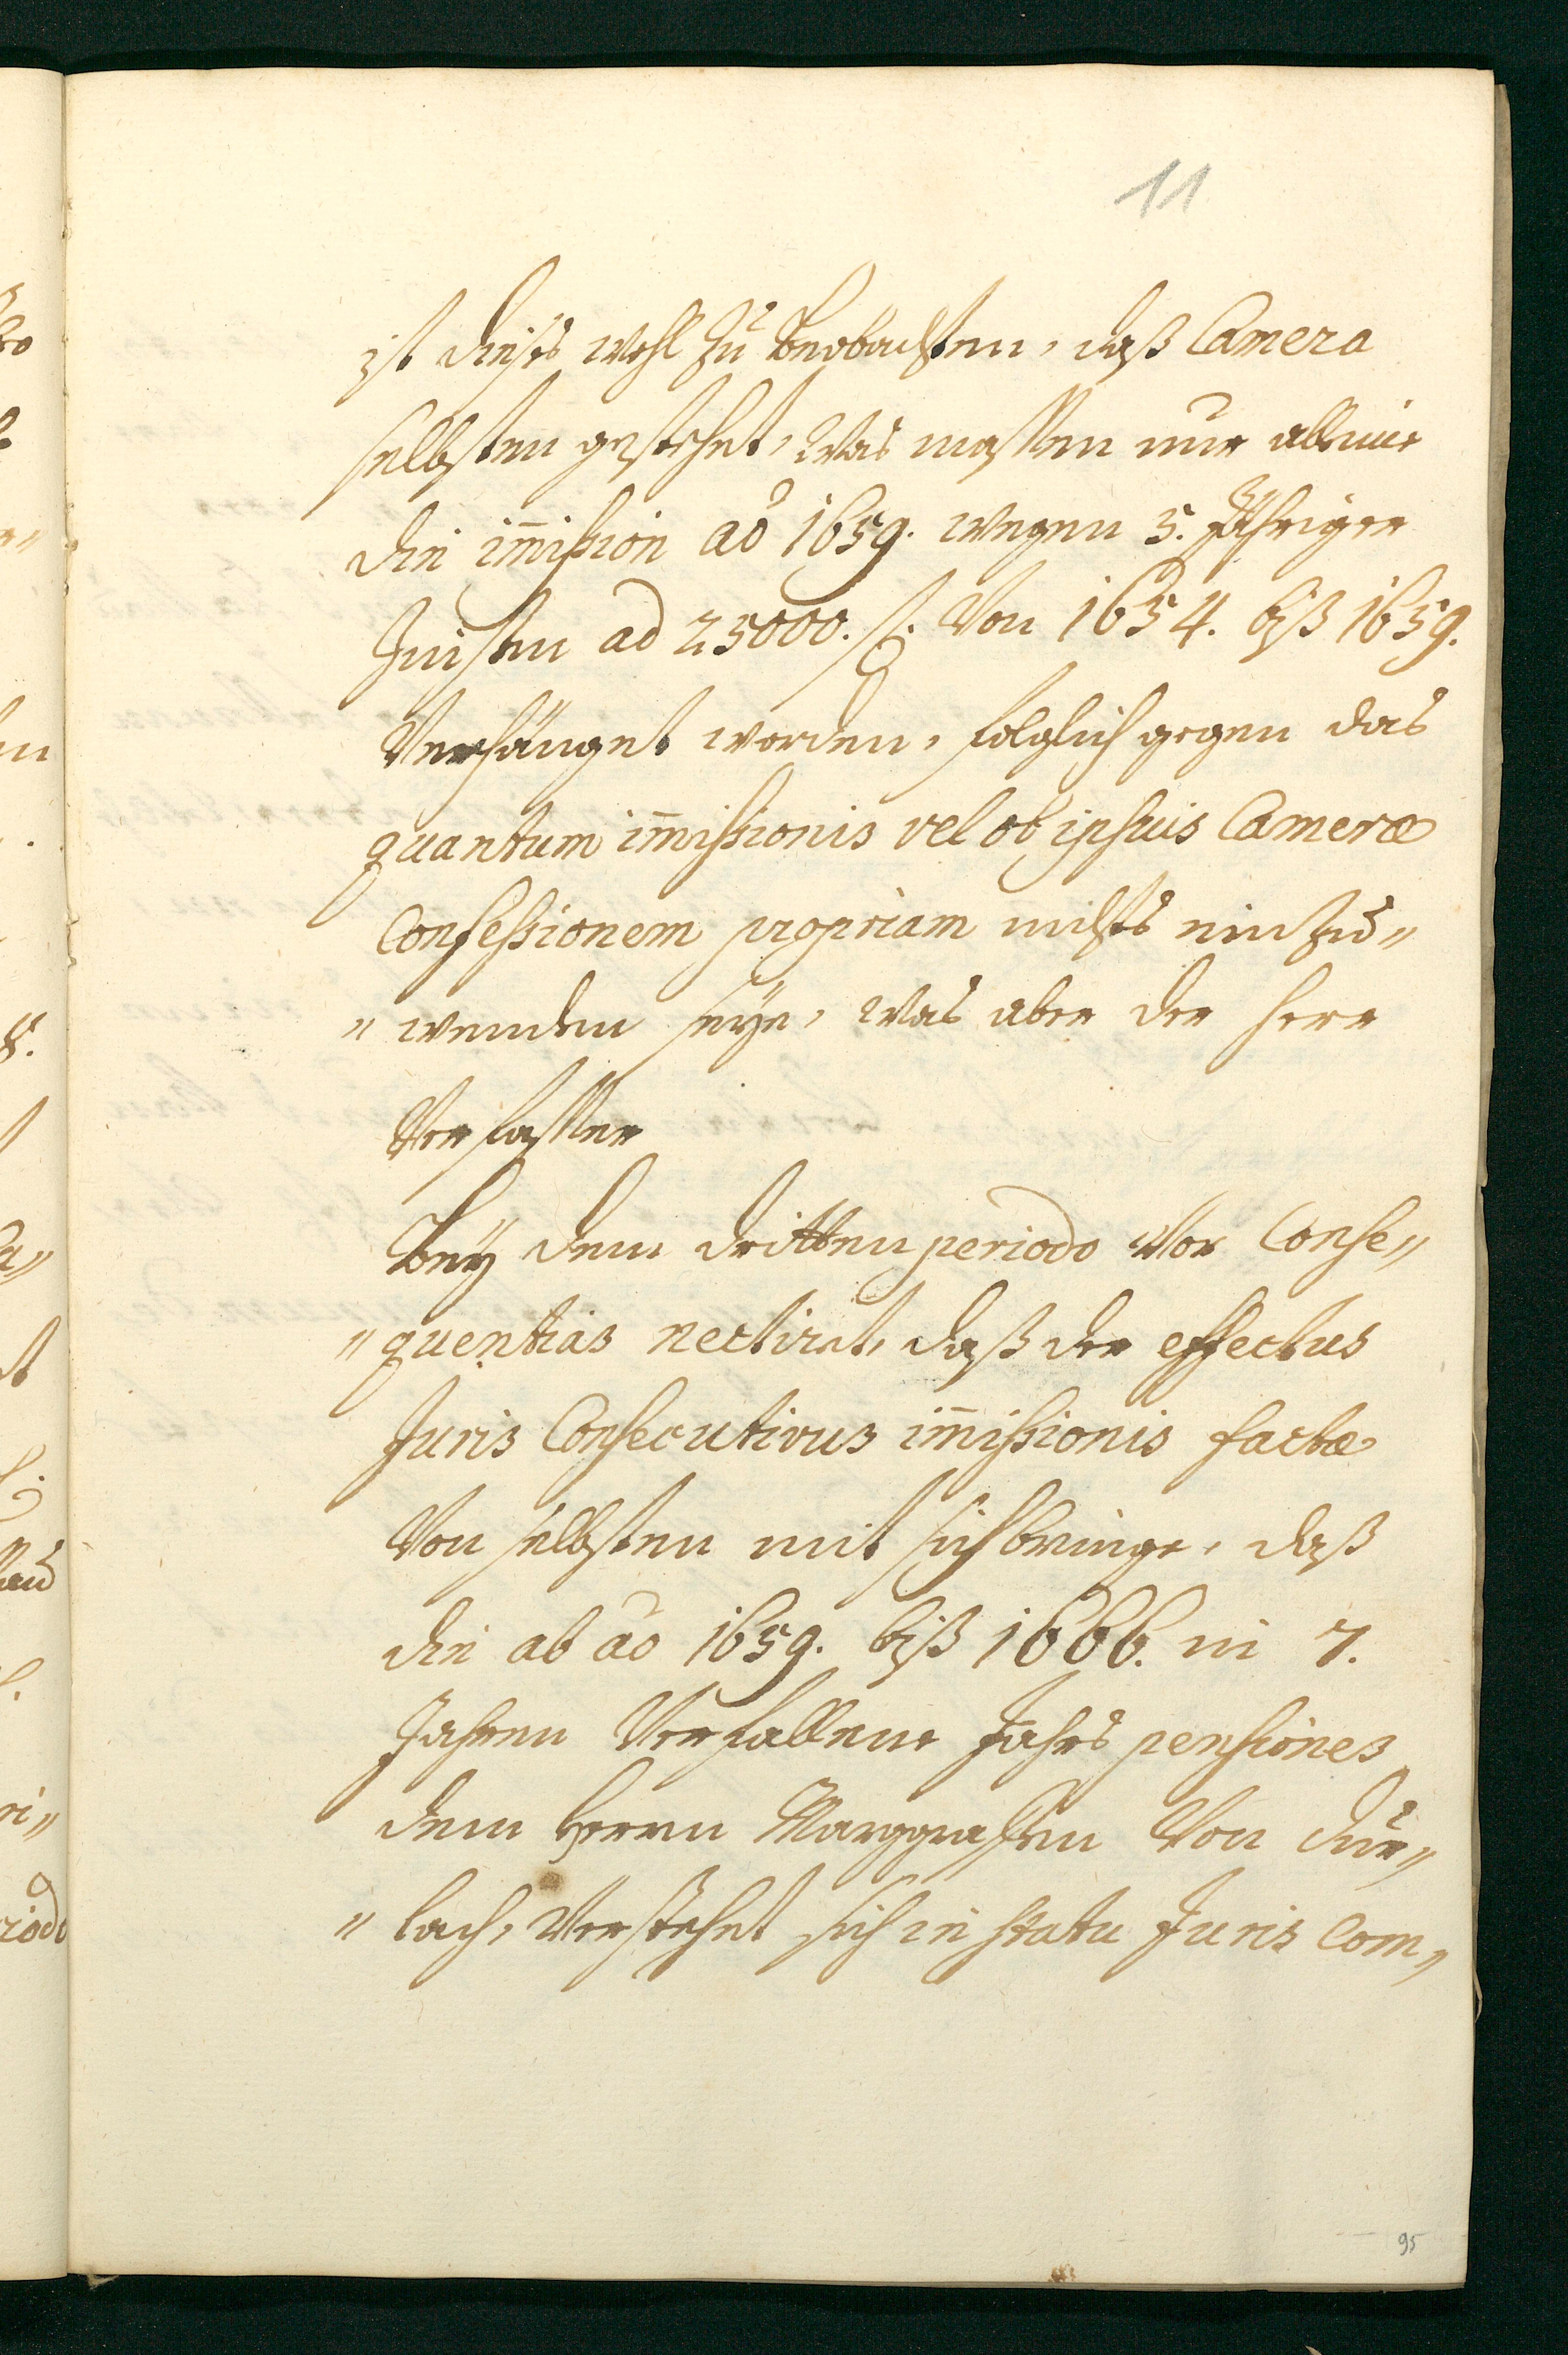 11
ist dieses wohl zu beobachten, daß Camera
selbsten gestehet, was massen nur alleine
die im̄ission aō 1659. wegen 5. Jähriger
Zinßen ad 25000. fl. von 1654. biß 1659.
verhänget worden, folglich gegen das
quantum im̄issionis vel ob ipsius Cameræ
Confessionem propriam nichts einzu„
„wenden seÿe, was aber der Herr
Verfasser
beÿ dem dritten periodo vor Conse„
„quentias nectiret, daß der effectus
Juris Consecutivus im̄issionis factæ
von selbsten mit sich bringe, daß
die ab aō 1659. biß 1666. in 7.
Jahren verfallene Jahrs pensiones
dem Herrn Marggrafen von Dur„
„lach, verstehet sich in statu Juris Com„
95